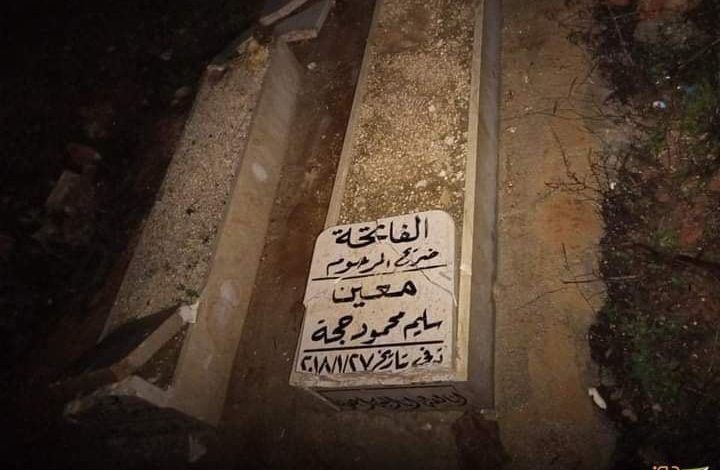 الفاتحة
ضريح المرحوم
معين
سليم محمود حجة
توفي تاريخ ٢٠١٨/١/٢٧